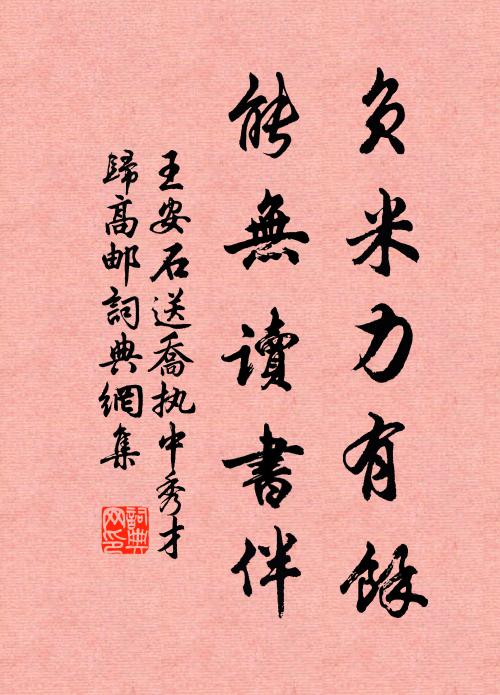 负米力有餘
能無讀書伴
王安石送喬执中秀才
歸高邮詞典網集
詞典網印